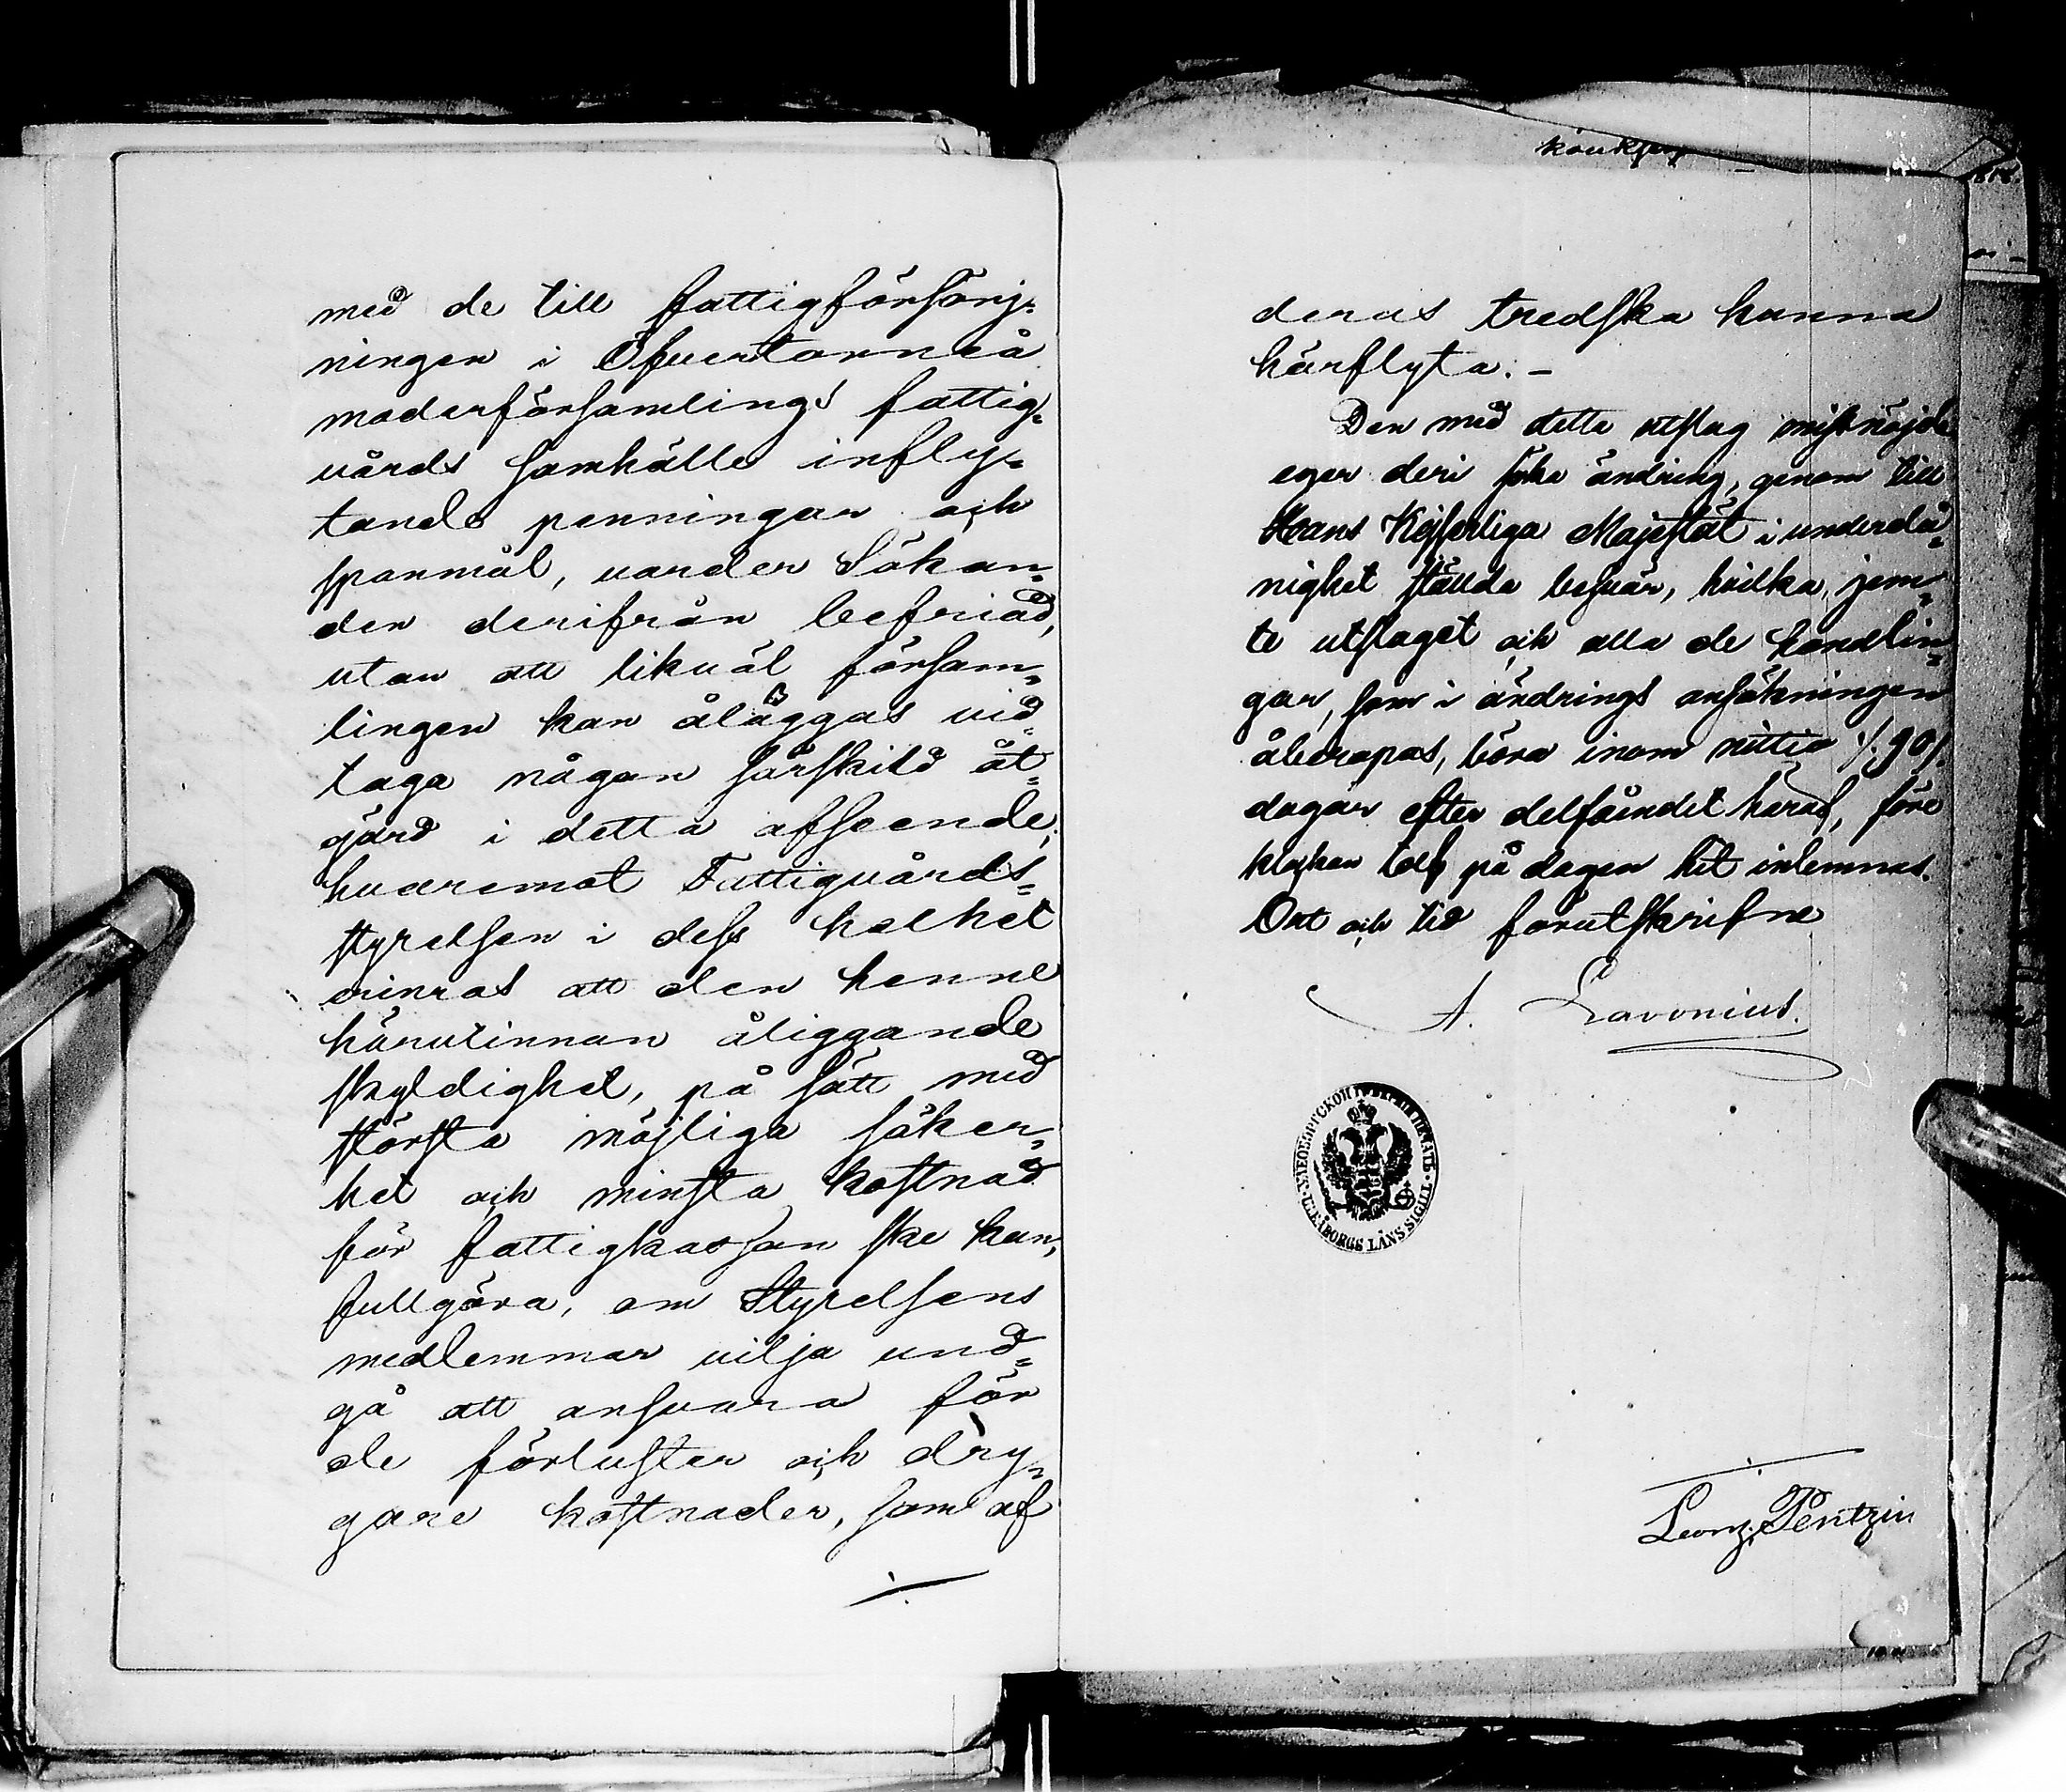 med de till fattigförsörj-
ningen i Öfvertorneå
moderförsamlings fattig-
vårds samhälle infly-
tande penningar och
spanmål, varder Sökan-
den derifrån befriad,
utan att likväl försam-
lingen kan åläggas vid-
taga någon särskild åt-
gärd i detta afseende;
hvaremot Fattigvårds-
styrelsen i dess helhet
erinras att den henne
härutinnan åliggande
skyldighet, på sätt med
största möjliga säker-
het och minsta kostnad
för fattigkassan ske kan,
fullgöra, om Styrelsens
medlemmar vilja und-
gå att ansvara för
de förluster och dry-
gare kostnader, som af
deras tredska kunna
härflyta. –
Den med detta utslag missnöjde
eger deri söka ändring, genom till
Hans Kejserliga Majestät i underdå-
nighet stälda besvär, hvilka, jem-
te utslaget och alla de handlin-
gar, som i ändrings ansökningen
åberopas, böra inom nittio /:90/.
dagar efter delfåendet häraf, före
klockan tolf på dagen hit inlemnas.
Ort och tid förutskrifne
A. Lavonius.
УЛЕОБОРГСКОЙ ГУБЕРНІИ ПЕЧАТЬ
ULEÅBORGS LÄNS SIGILL
Leonz. Pentzin